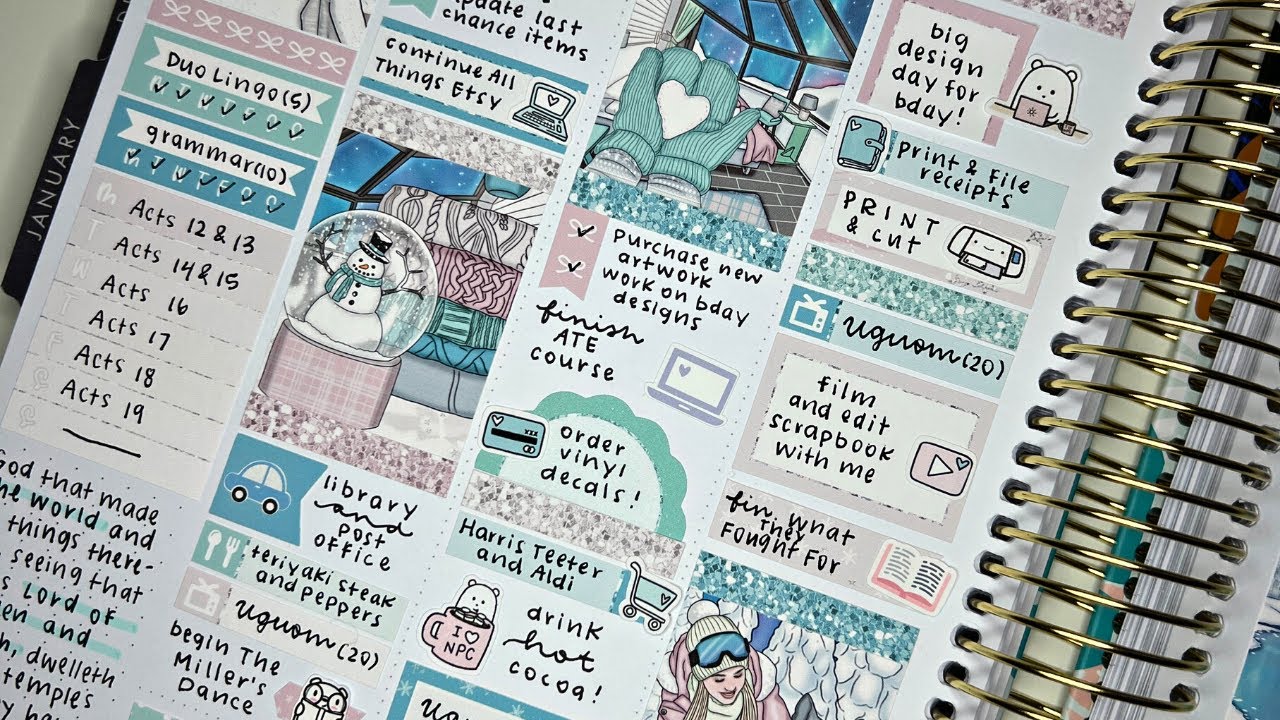 JANUARY
Duo Lingo(5)
grammar(10)
M
Acts 12 & 13
T
Acts 14 & 15
W
Acts 16
T
Acts 17
F
Acts 18
S
Acts 19
S
God that made
the world and
things there-
seeing that
Lord of
and
dwelleth
temples
update last
chance items
continue All
Things Etsy
library
and
Post
office
teriyaki steak
and peppers
uguom(20)
begin The
Miller's
Dance
Purchase new
artwork
work on bday
designs
finish
ATE
course
order
vinyl
decals!
Harris Teeter
and Aldi
I ♡
NPC
drink
hot
cocoa!
big
design
day for
bday!
Print & File
receipts
PRINT
& cut
uguom(20)
film
and edit
scrapbook
with me
fin. What
They
Fought For